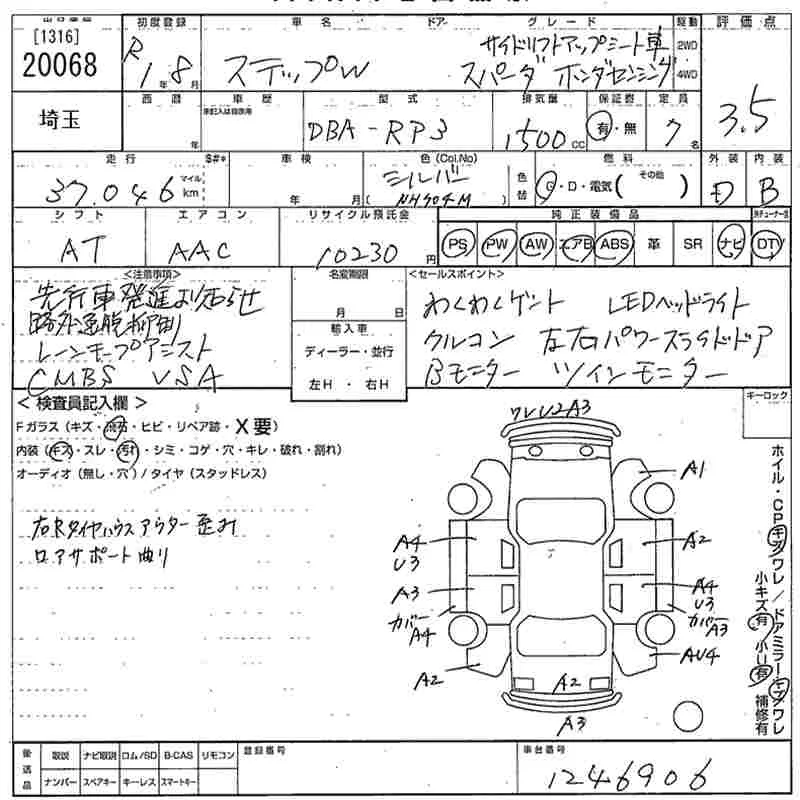 出品番号 初度登録 車名 ドア グレード 駆動 評価点
[1316]
20068
R 1年 8月
ステップW
サイドリフトアップシート車
スパーダ ホンダセンシング
2WD
4WD
3.5
埼玉
西暦 年
車歴
型式 DBA-RP3
排気量 1500cc
保証書 有・無
定員 7名
走行 37,046 マイル km
$#*
車検 年 月
色(Col.No) シルバー
( NH704M )
色替
燃料 G・D・電気( その他 )
外装 D
内装 B
シフト AT
エアコン AAC
リサイクル預託金 10230円
純正装備品
PS PW AW エアB ABS 革 SR ナビ DTV
<注意事項>
先行車発進お知らせ
路外逸脱抑制
レーンキープアシスト
CMBS VSA
名変期限
月 日
輸入車
ディーラー・並行
左H・右H
<セールスポイント>
わくわくゲート LEDヘッドライト
クルコン 左右パワースライドドア
Bモニター ツインモニター
<検査員記入欄>
Fガラス(キズ・飛石・ヒビ・リペア跡・X要)
内装(キズ・スレ・汚れ・シミ・コゲ・穴・キレ・破れ・割れ)
オーディオ(無し・穴)/タイヤ(スタッドレス)
右Rタイヤハウス アウター 歪み
ロアサポート曲り
キーロック
ワレU2A3
A1
A4
U3
A2
A3
A4
U3
カバー
A4
カバー
A3
A2
AU4
A2
A3
ホイル・CPキズワレ/ドアミラーキズワレ
小キズ有 小U有 補修有
後送品
取説 ナビ取説 ロム/SD B-CAS リモコン
ナンバー スペアキー キーレス スマートキー
登録番号
車台番号
1246906